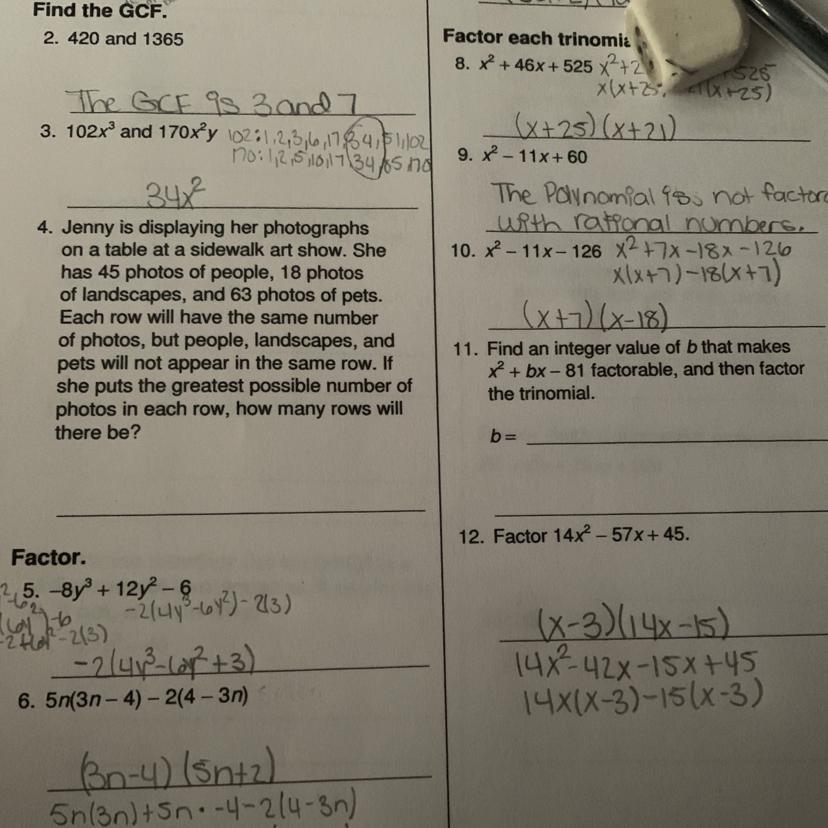 Find the GCF.
2. 420 and 1365
The GCF is 3 and 7
3. 102x³ and 170x²y
102:1,2,3,6,17,34,51,102
170:1,2,5,10,17,34,85 170
34x²
4. Jenny is displaying her photographs
on a table at a sidewalk art show. She
has 45 photos of people, 18 photos
of landscapes, and 63 photos of pets.
Each row will have the same number
of photos, but people, landscapes, and
pets will not appear in the same row. If
she puts the greatest possible number of
photos in each row, how many rows will
there be?
Factor.
5. –8y³ + 12y² – 6
-2(4y³-6y²)-2(3)
-2(4y³-6y²+3)
6. 5n(3n – 4) – 2(4 – 3n)
(3n-4)(5n+2)
5n(3n)+5n·-4-2(4-3n)
Factor each
8. x² + 46x + 525
x(x+25 (x+25)
(x+25)(x+21)
9. x² – 11x + 60
The Polynomial is not
with rational numbers.
10. x² – 11x – 126 x²+7x-18x-126
x(x+7)-18(x+7)
(x+7)(x-18)
11. Find an integer value of b that makes
x² + bx – 81 factorable, and then factor
the trinomial.
b =
12. Factor 14x² – 57x + 45.
(x-3)(14x-15)
14x²-42x-15x+45
14x(x-3)-15(x-3)